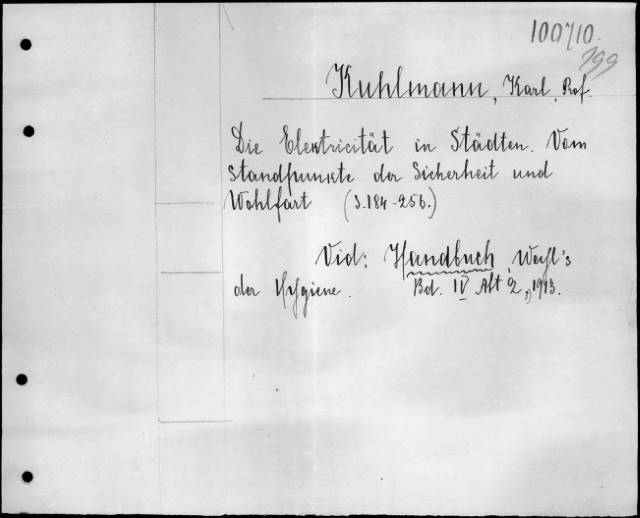 100710.
799
Kuhlmann, Karl, Prof.
Die Elektricität in Städten. Vom
Standpunkte der Sicherheit und
Wohlfart (S. 184-256.)
Vid: Handbuch, Weyl's
der Hygiene. Bd. IV Abt 2, 1913.